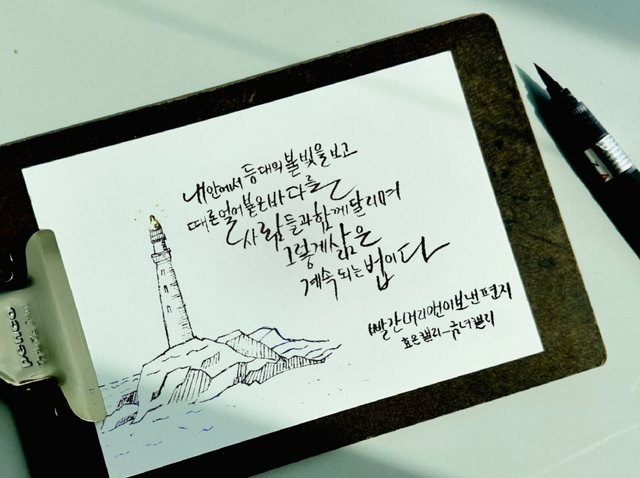 내 안에서 등대의 불빛을 보고
때론 얼어붙은 바다를
사람들과 함께 달리며
그렇게 삶은
계속 되는 법이다
빨간머리앤이 보낸 편지
penco